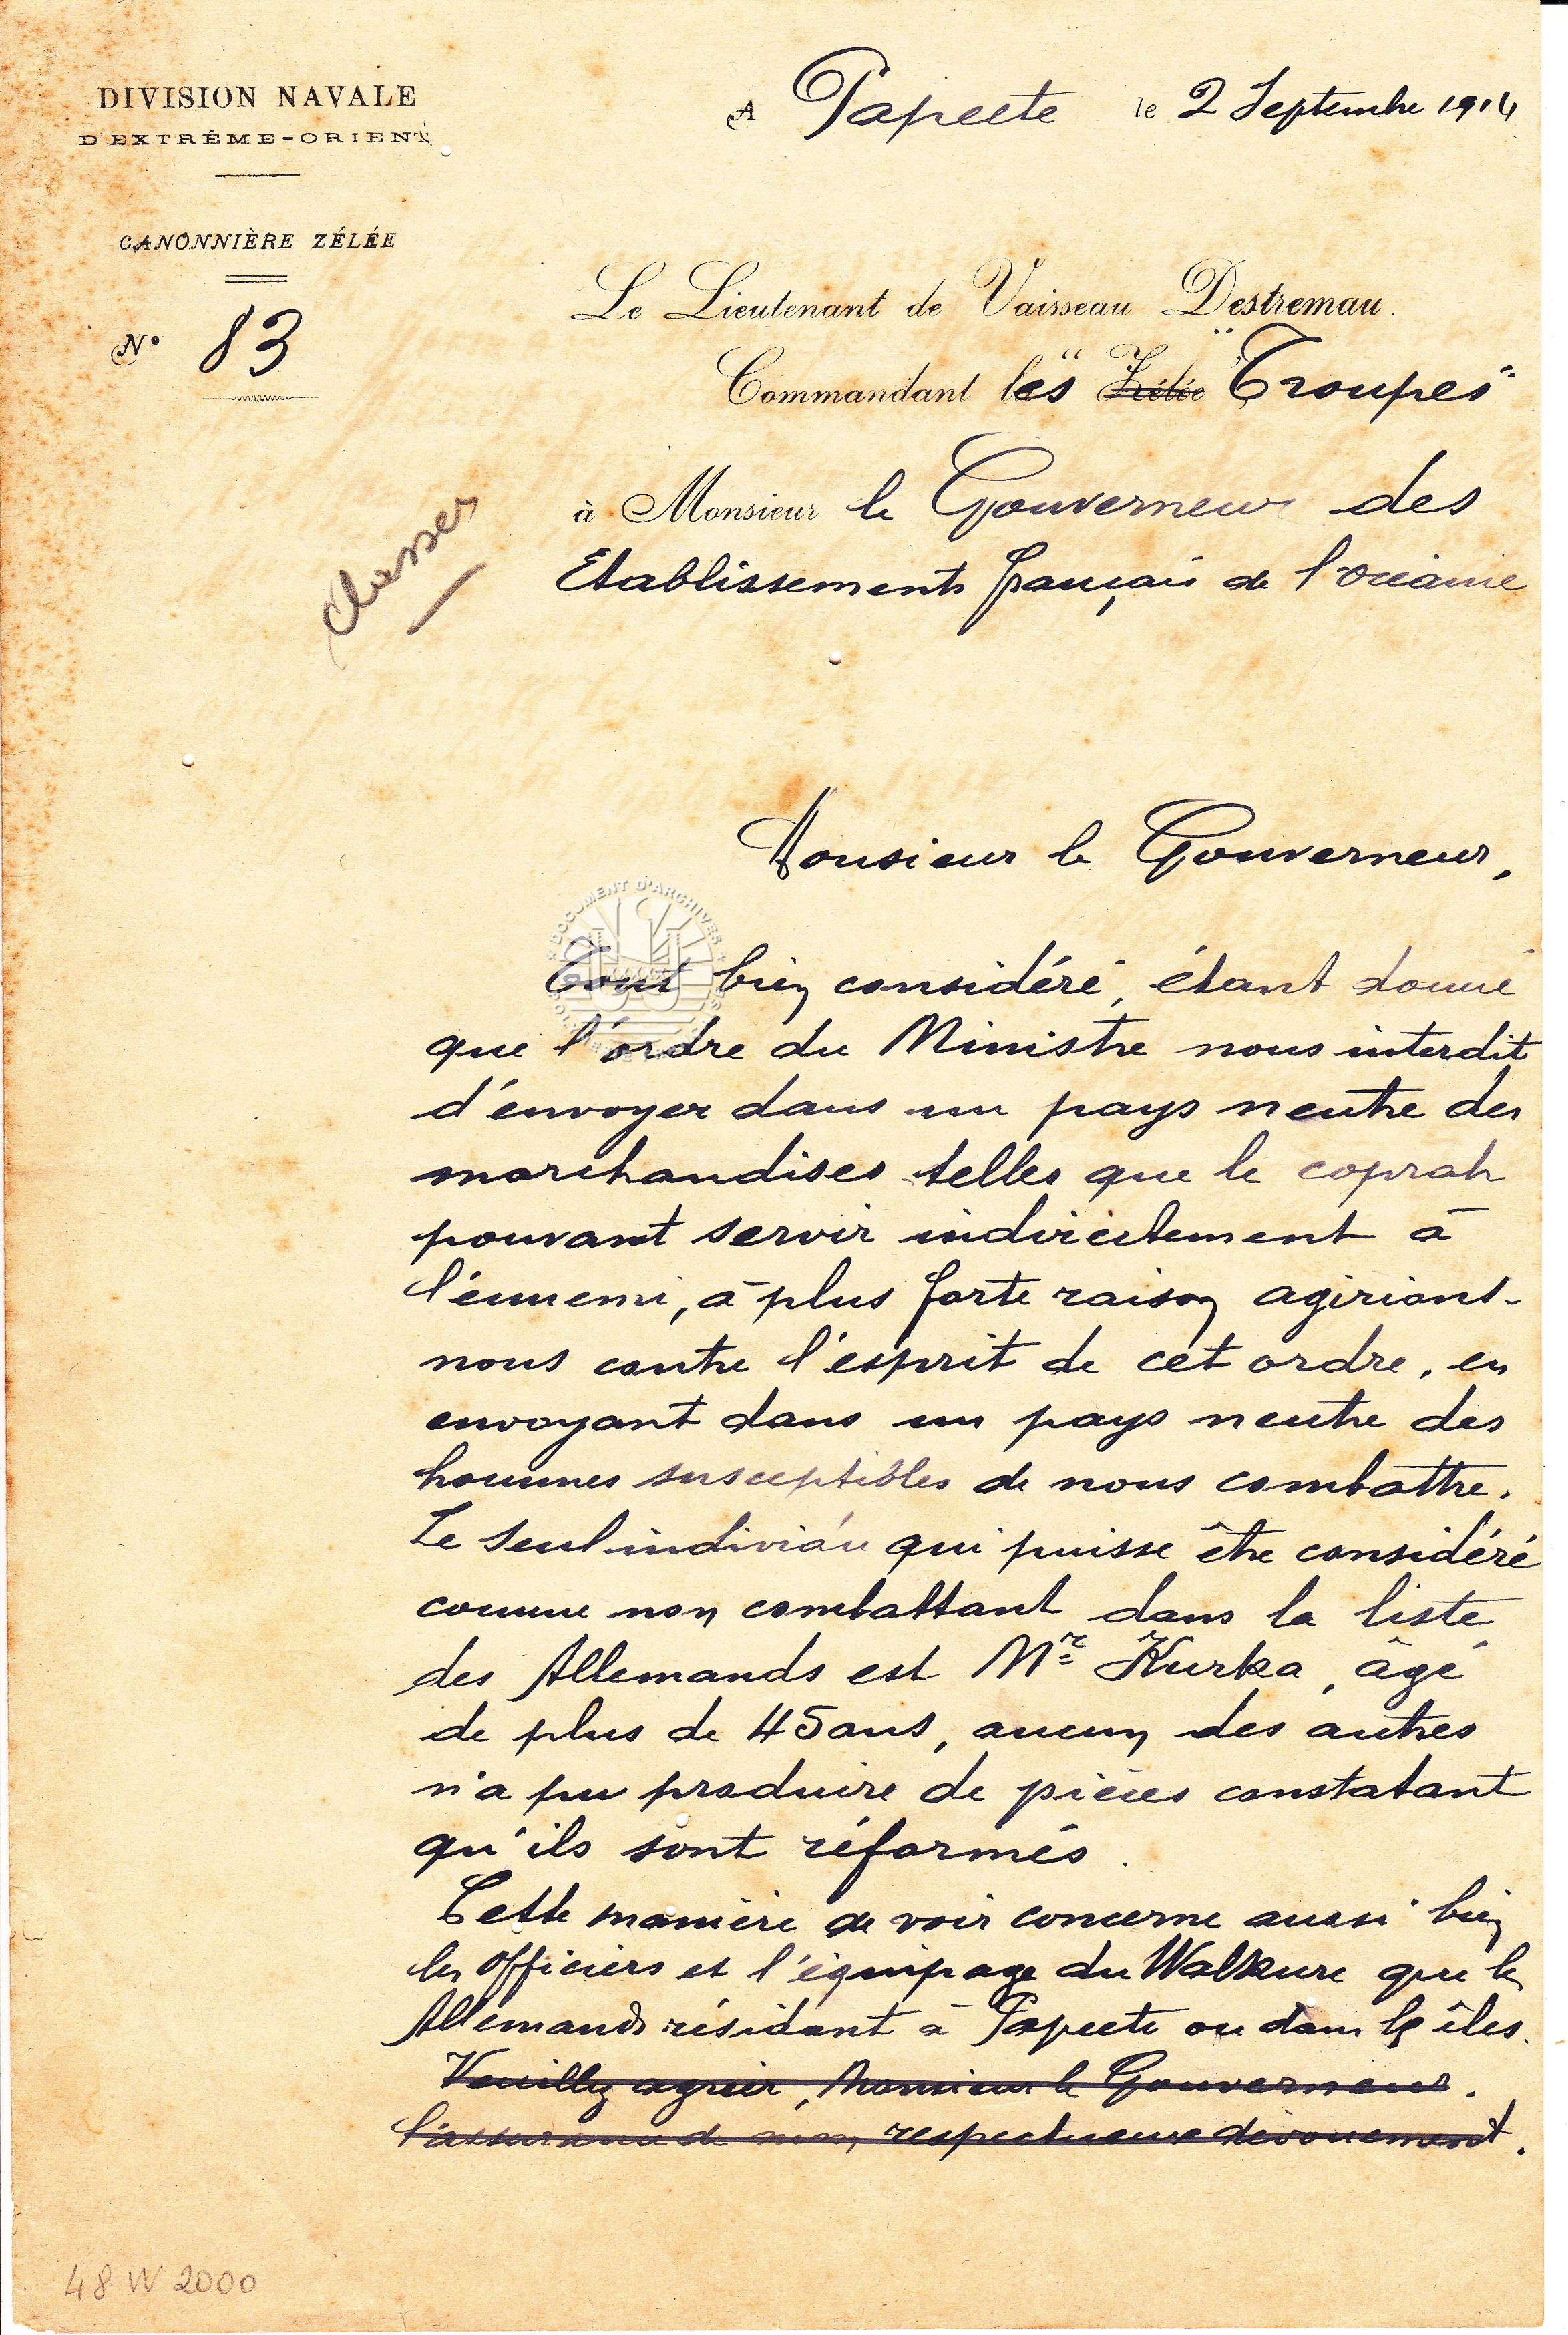 DIVISION NAVALE
D'EXTRÊME-ORIENT
CANONNIÈRE ZÉLÉE
N° 83
A Papeete le 2 Septembre 1914
Le Lieutenant de Vaisseau Destremau.
Commandant les "Zélée" "Troupes"
à Monsieur le Gouverneur des
Etablissements français de l'océanie
Classer
Monsieur le Gouverneur,
DOCUMENT D'ARCHIVES
Tout bien considéré, étant donné
que l'ordre du Ministre nous interdit
d'envoyer dans un pays neutre des
marchandises telles que le coprah
pouvant servir indirectement à
l'ennemi, à plus forte raison agirions-
nous contre l'esprit de cet ordre, en
envoyant dans un pays neutre des
hommes susceptibles de nous combattre.
Le seul individu qui puisse être considéré
comme non combattant dans la liste
des Allemands est Mr Kurka, âgé
de plus de 45 ans, aucun des autres
n'a pu produire de pièces constatant
qu'ils sont réformés.
Cette manière de voir concerne aussi bien
les officiers et l'équipage du Walkure que les
Allemands résidant à Papeete ou dans les îles.
Veuillez agréer, Monsieur le Gouverneur.
l'assurance de mon respectueux dévouement.
48 W 2000